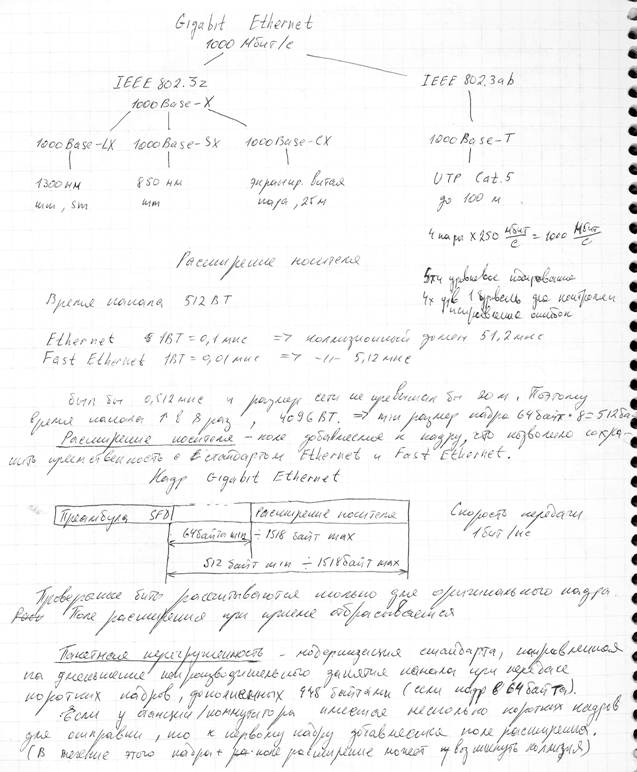 Gigabit Ethernet
1000 Мбит/с
IEEE 802.3z IEEE 802.3ab
1000Base-X
1000Base-LX 1000Base-Sx 1000Base-CX 1000Base-T
1300 нм 850 нм экранир. витая UTP Cat.5
mm, sm mm пара, 25м до 100 м
4 пары x 250 Мбит/с = 1000 Мбит/с
Расширение носителя
5ти уровневое кодирование
4х ур 1 уровень для контроля
ошибок
Время канала 512 BT
Ethernet 1BT = 0,1 мкс => коллизионный домен 51,2 мкс
Fast Ethernet 1BT = 0,01 мкс => -11- 5,12 мкс
был бы 0,512 мкс и размер сети не превышал бы 20 м. Поэтому
время канала ↑ в 8 раз, 4096 BT. => min размер кадра 64байт·8=512ба
Расширение носителя - поле добавляется к кадру, что позволило сохра-
нить преемственность с стандартом Ethernet и Fast Ethernet.
Кадр Gigabit Ethernet
Преамбула SFD Расширение носителя Скорость передачи
64байта min ÷ 1518 байт max 1бит/нс
512 байт min ÷ 1518байт max
Проверочные биты рассчитываются только для оригинального кадра.
Поле расширения при приеме отбрасывается
Пакетная перегруженность - модернизация стандарта, направленная
на уменьшение непроизводительного занятия канала при передаче
коротких кадров, дополненных 448 байтами (если кадр в 64 байта).
Если у станции/коммутатора имеется несколько коротких кадров
для отправки, то к первому кадру добавляется поле расширения.
(В течение этого кадра + поле расширение может возникнуть коллизия)